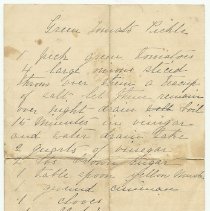 Green Tomato Pickle
1 peck green tomatoes
4 large onions sliced
throw over them a teacup
of salt let them remain
over night drain boil
15 minutes in vinegar
and water drain take
2 quarts of vinegar
2 lbs brown sugar
1 table spoon yellow
ground cinnamon
1 cloves